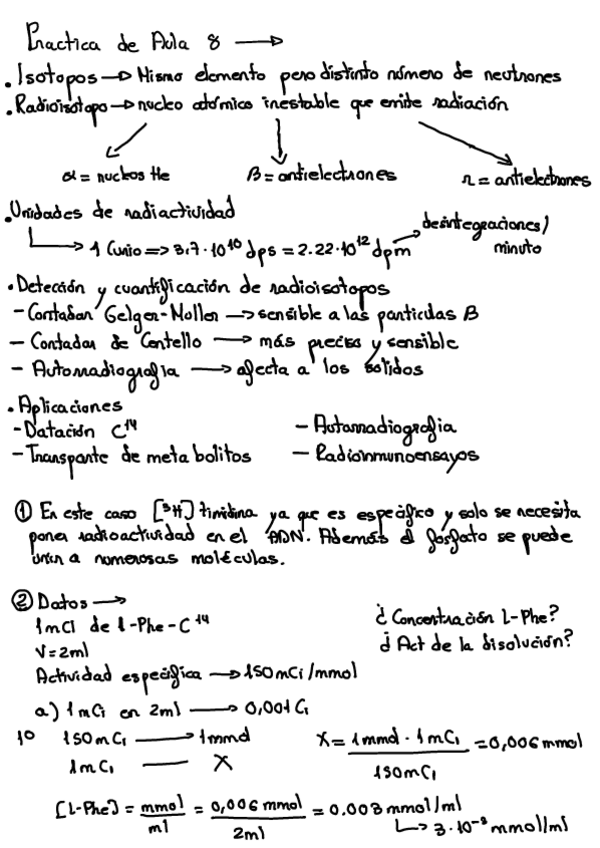 Practica de Aula 8 →
. Isotopos → Mismo elemento pero distinto número de neutrones
. Radioisotopo → nucleo atómico inestable que emite radiación
α = nucleos He β = antielectrones π = antielectrones
. Unidades de radiactividad
1 Curio => 3.7·10¹⁰ dps = 2.22·10¹² dpm → desintegraciones/
minuto
. Detección y cuantificación de radioisotopos
- Contador Gelger-Moller → sensible a las particulas β
- Contador de Centello → más preciso y sensible
- Automadiografia → afecta a los solidos
. Aplicaciones
- Datación C¹⁴ - Automadiografia
- Transporte de metabolitos - Radioinmunoensayos
① En este caso [³H] timidina ya que es específico y solo se necesita
poner radioactividad en el ADN. Además el fosfato se puede
unir a numerosas moléculas.
② Datos →
1mCl de l-Phe-C¹⁴ ¿ Concentración L-Phe?
V=2ml ¿ Act de la disolución?
Actividad específica → 150mCi/mmol
a) 1 mCi en 2ml → 0,001 Ci
1º 150mCi → 1mmol X = 1mmol · 1mCi / 150mCi = 0,006 mmol
1mCi — X
[L-Phe] = mmol / ml = 0,006 mmol / 2ml = 0.003 mmol/ml
↳ 3·10⁻³ mmol/ml